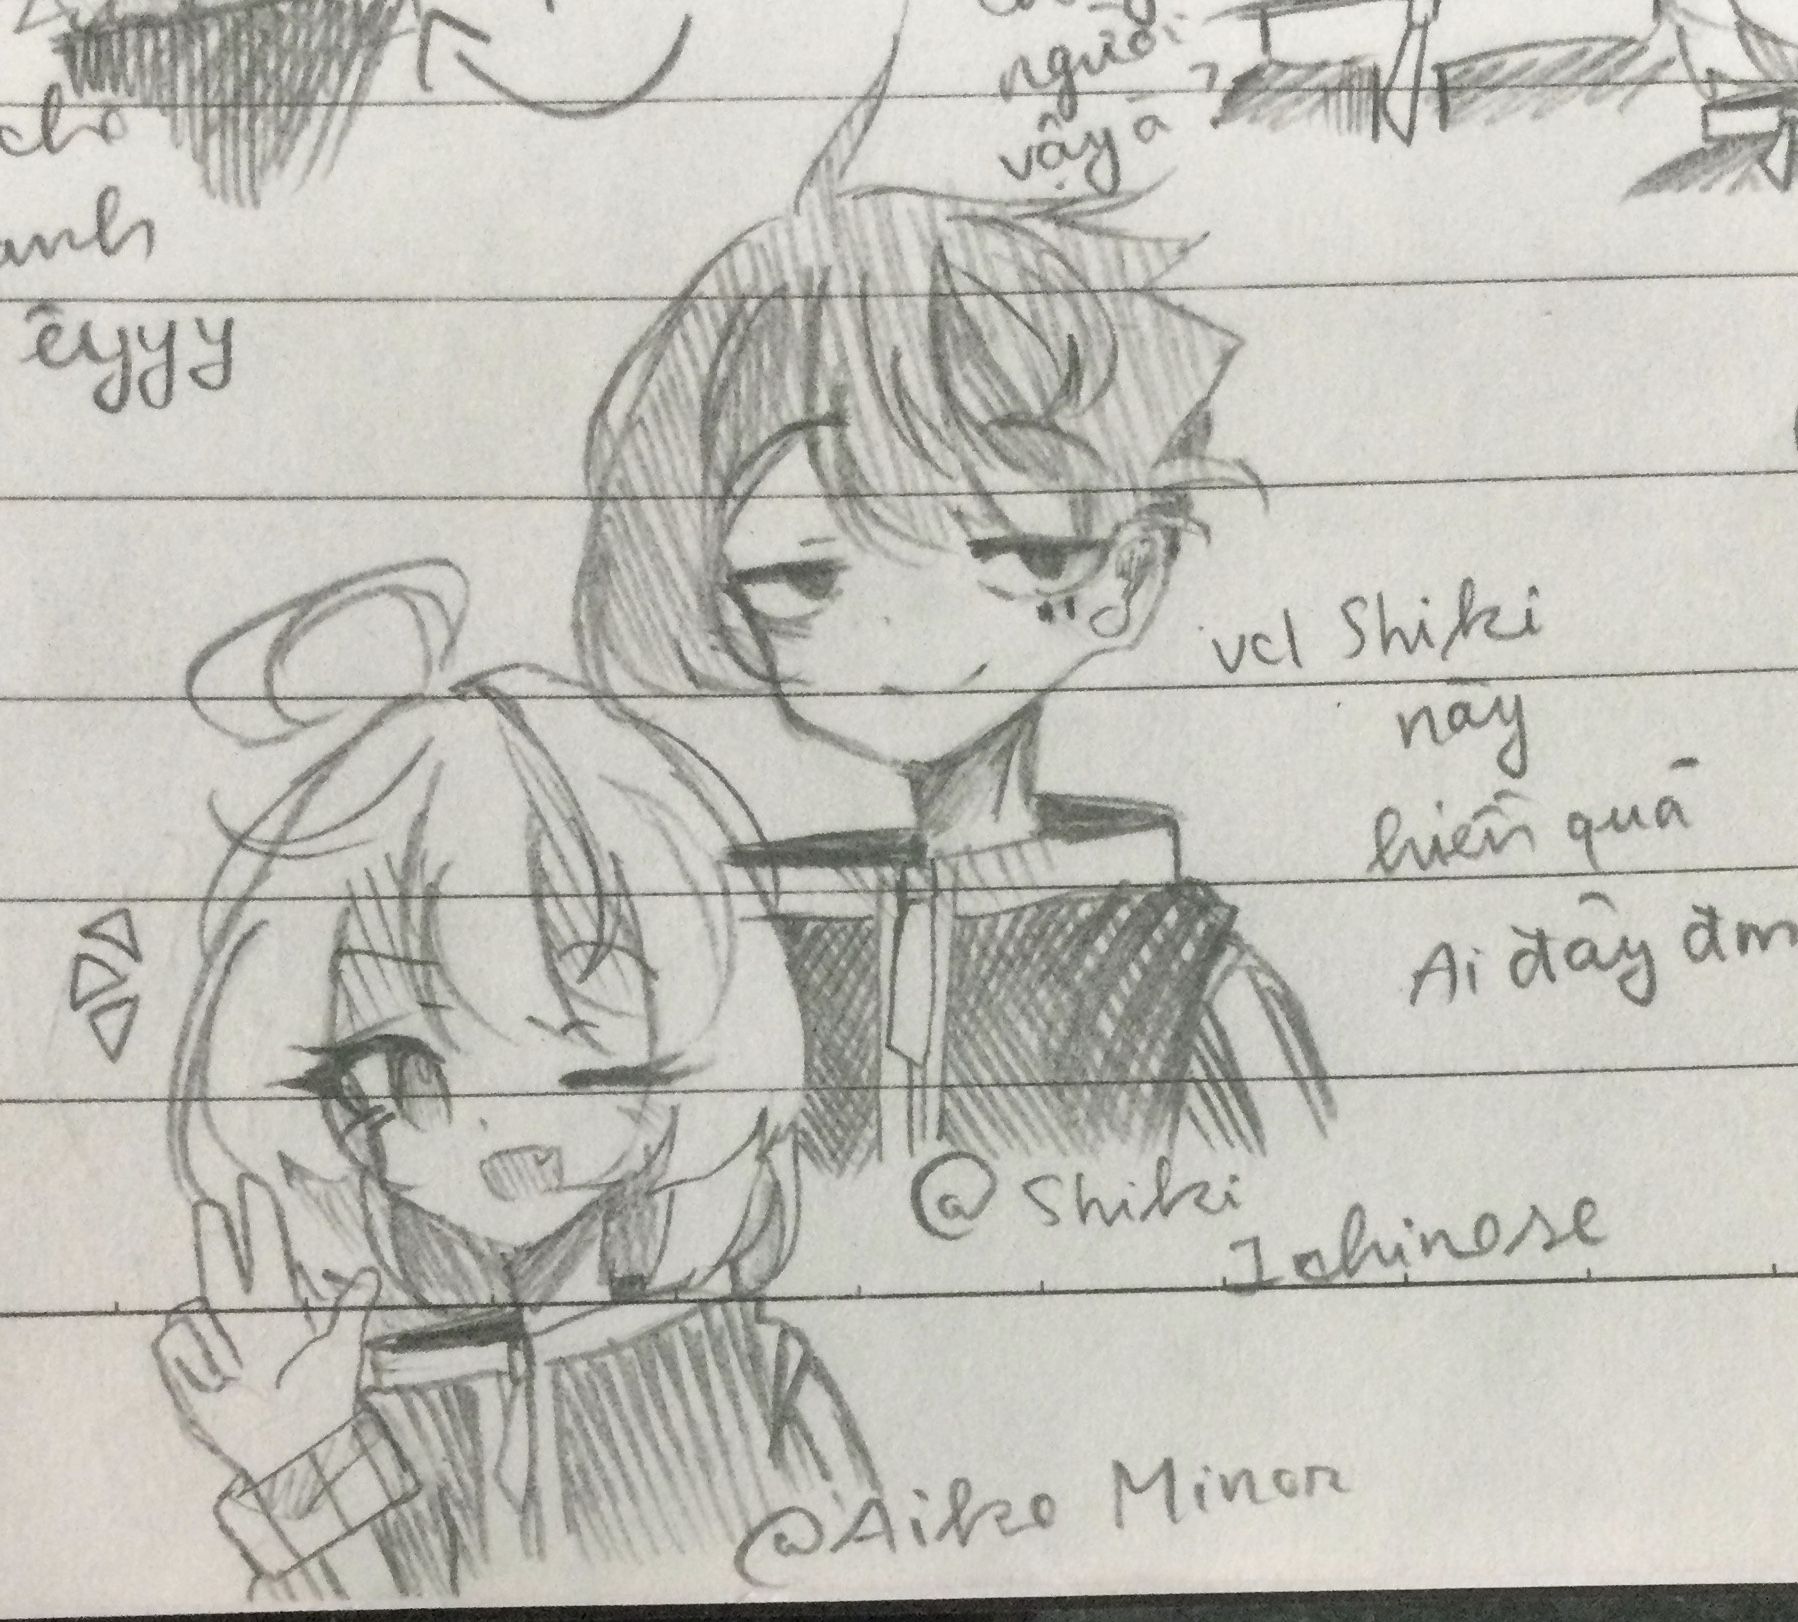 người
vậy à?
cho
anh
êyyy
vcl Shiki
này
hiền quá
Ai đây đm
@Shiki
Ichinose
@Aiko Minor